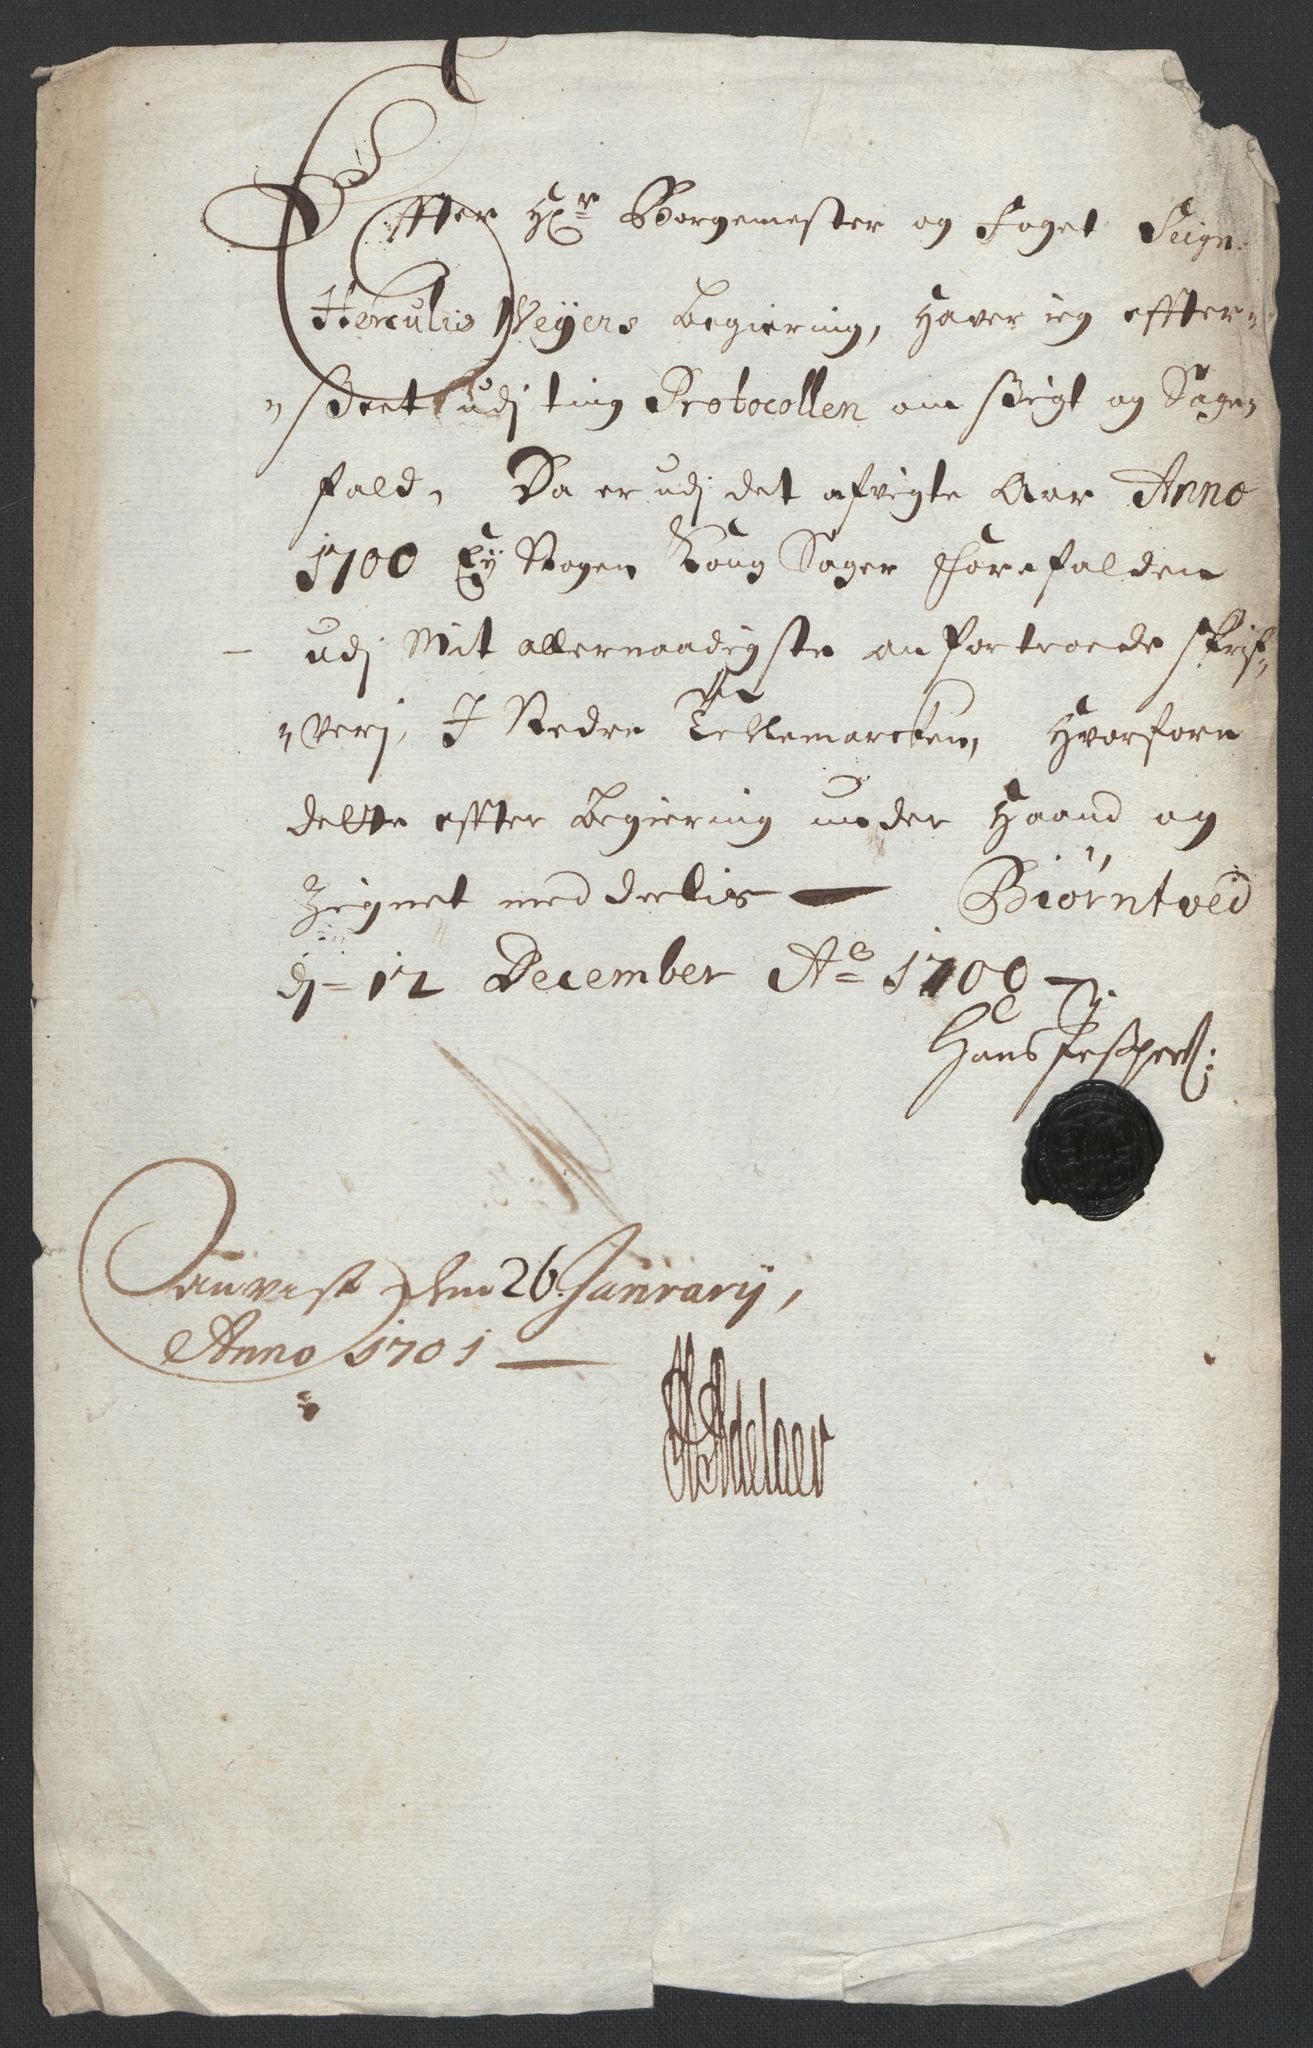 Effter Hr: Borgemester og Foget Seign:
Herculis Weyers begiering, haver ieg effter=
=seet udj ting Protocollen om Sigt og Sage=
fald, Da er udj det afvigte Aar Anno
1700 Ey Nogen Kong Sager forefalden
udj Mit allernaadigste anfortroede skrif=
=verj, I Nedre Tellemarcken, Hvorfore
dette effter begiering under Haand og
Zignet meddeelis — Biørntved
dj = 12 December Ao 1700 —
Hans Jespers:
Anvist den 26 Janvarij,
Anno 1701 —
Adelaer